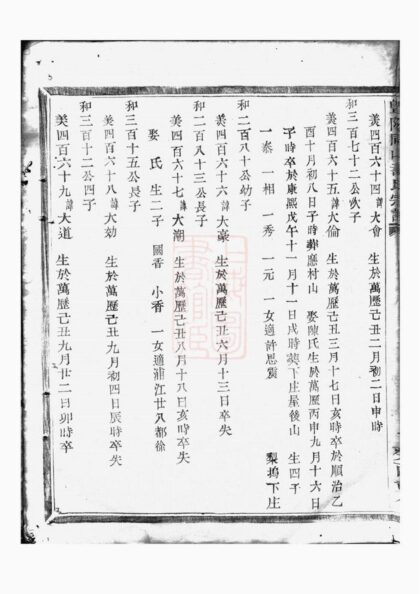 美四百六十四諱大會 生於萬歷己丑二月初二日申時
和三百七十二公次子
美四百六十五諱大倫 生於萬歷己丑三月十七日亥時卒於順治乙
酉十月初八日子時葬應村山 娶陳氏生於萬歷丙申九月十六日
子時卒於康熙戊午十一月十一日戌時葬下庄屋後山 生四子
一泰 一相 一秀 一元 一女適許思震 梨塢下庄
和二百八十公幼子
美四百六十六諱大豪 生於萬歷己丑六月十三日卒失
和二百八十三公長子
美四百六十七諱大潮 生於萬歷己丑八月十八日亥時卒失
娶 氏生二子 國香 小香 一女適浦江廿八都徐
和三百十五公長子
美四百六十八諱大効 生於萬歷己丑九月初四日辰時卒失
和三百十二公四子
美四百六十九諱大道 生於萬歷己丑九月廿二日卯時卒